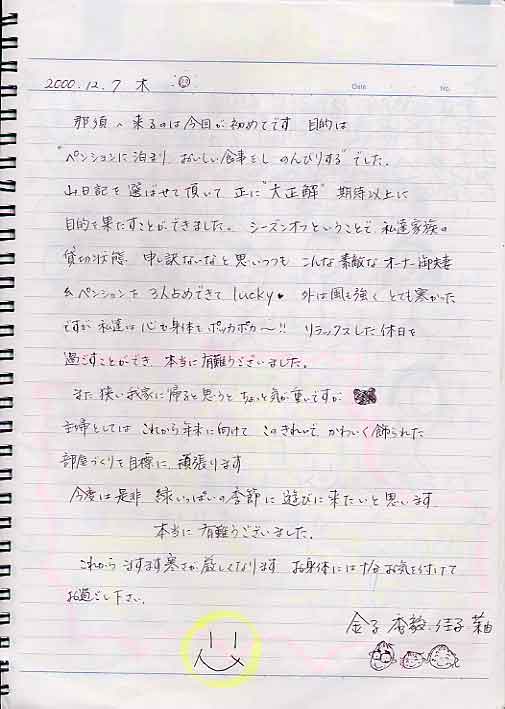 2000.12.7 木
Date
No.
那須へ来るのは今回が初めてです 目的は
"ペンションに泊まり、おいしい食事をし のんびりする"でした。
山日記を選ばせて頂いて 正に"大正解" 期待以上に
目的を果たすことができました。 シーズンオフということで、私達家族の
貸切状態 申し訳ないなと思いつつも こんな素敵なオーナー御夫妻
&ペンションを 3人占めできて lucky♥ 外は風も強く とても寒かった
ですが 私達は 心も身体も ポッカポカ〜!! リラックスした休日を
過ごすことができ 本当に有難うございました。
また 狭い我家に帰ると思うと ちょっと気が重いですが
主婦としては これから年末に向けて このきれいで、かわいく飾られた
部屋づくりを目標に、頑張ります
今度は是非 緑いっぱいの季節に 遊びに来たいと思います
本当に 有難うございました。
これから ますます寒さが厳しくなります お身体には 十分お気を付けて
お過ごし下さい。
金子 佳子